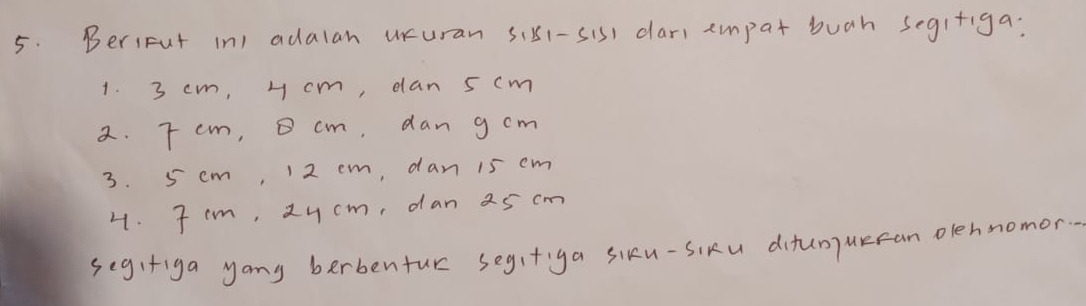 5. Berikut ini adalah ukuran sisi-sisi dari empat buah segitiga:
1. 3 cm, 4 cm, dan 5 cm
2. 7 cm, 8 cm, dan 9 cm
3. 5 cm, 12 cm, dan 15 cm
4. 7 cm, 24 cm, dan 25 cm
segitiga yang berbentuk segitiga siku-siku ditunjukkan oleh nomor...